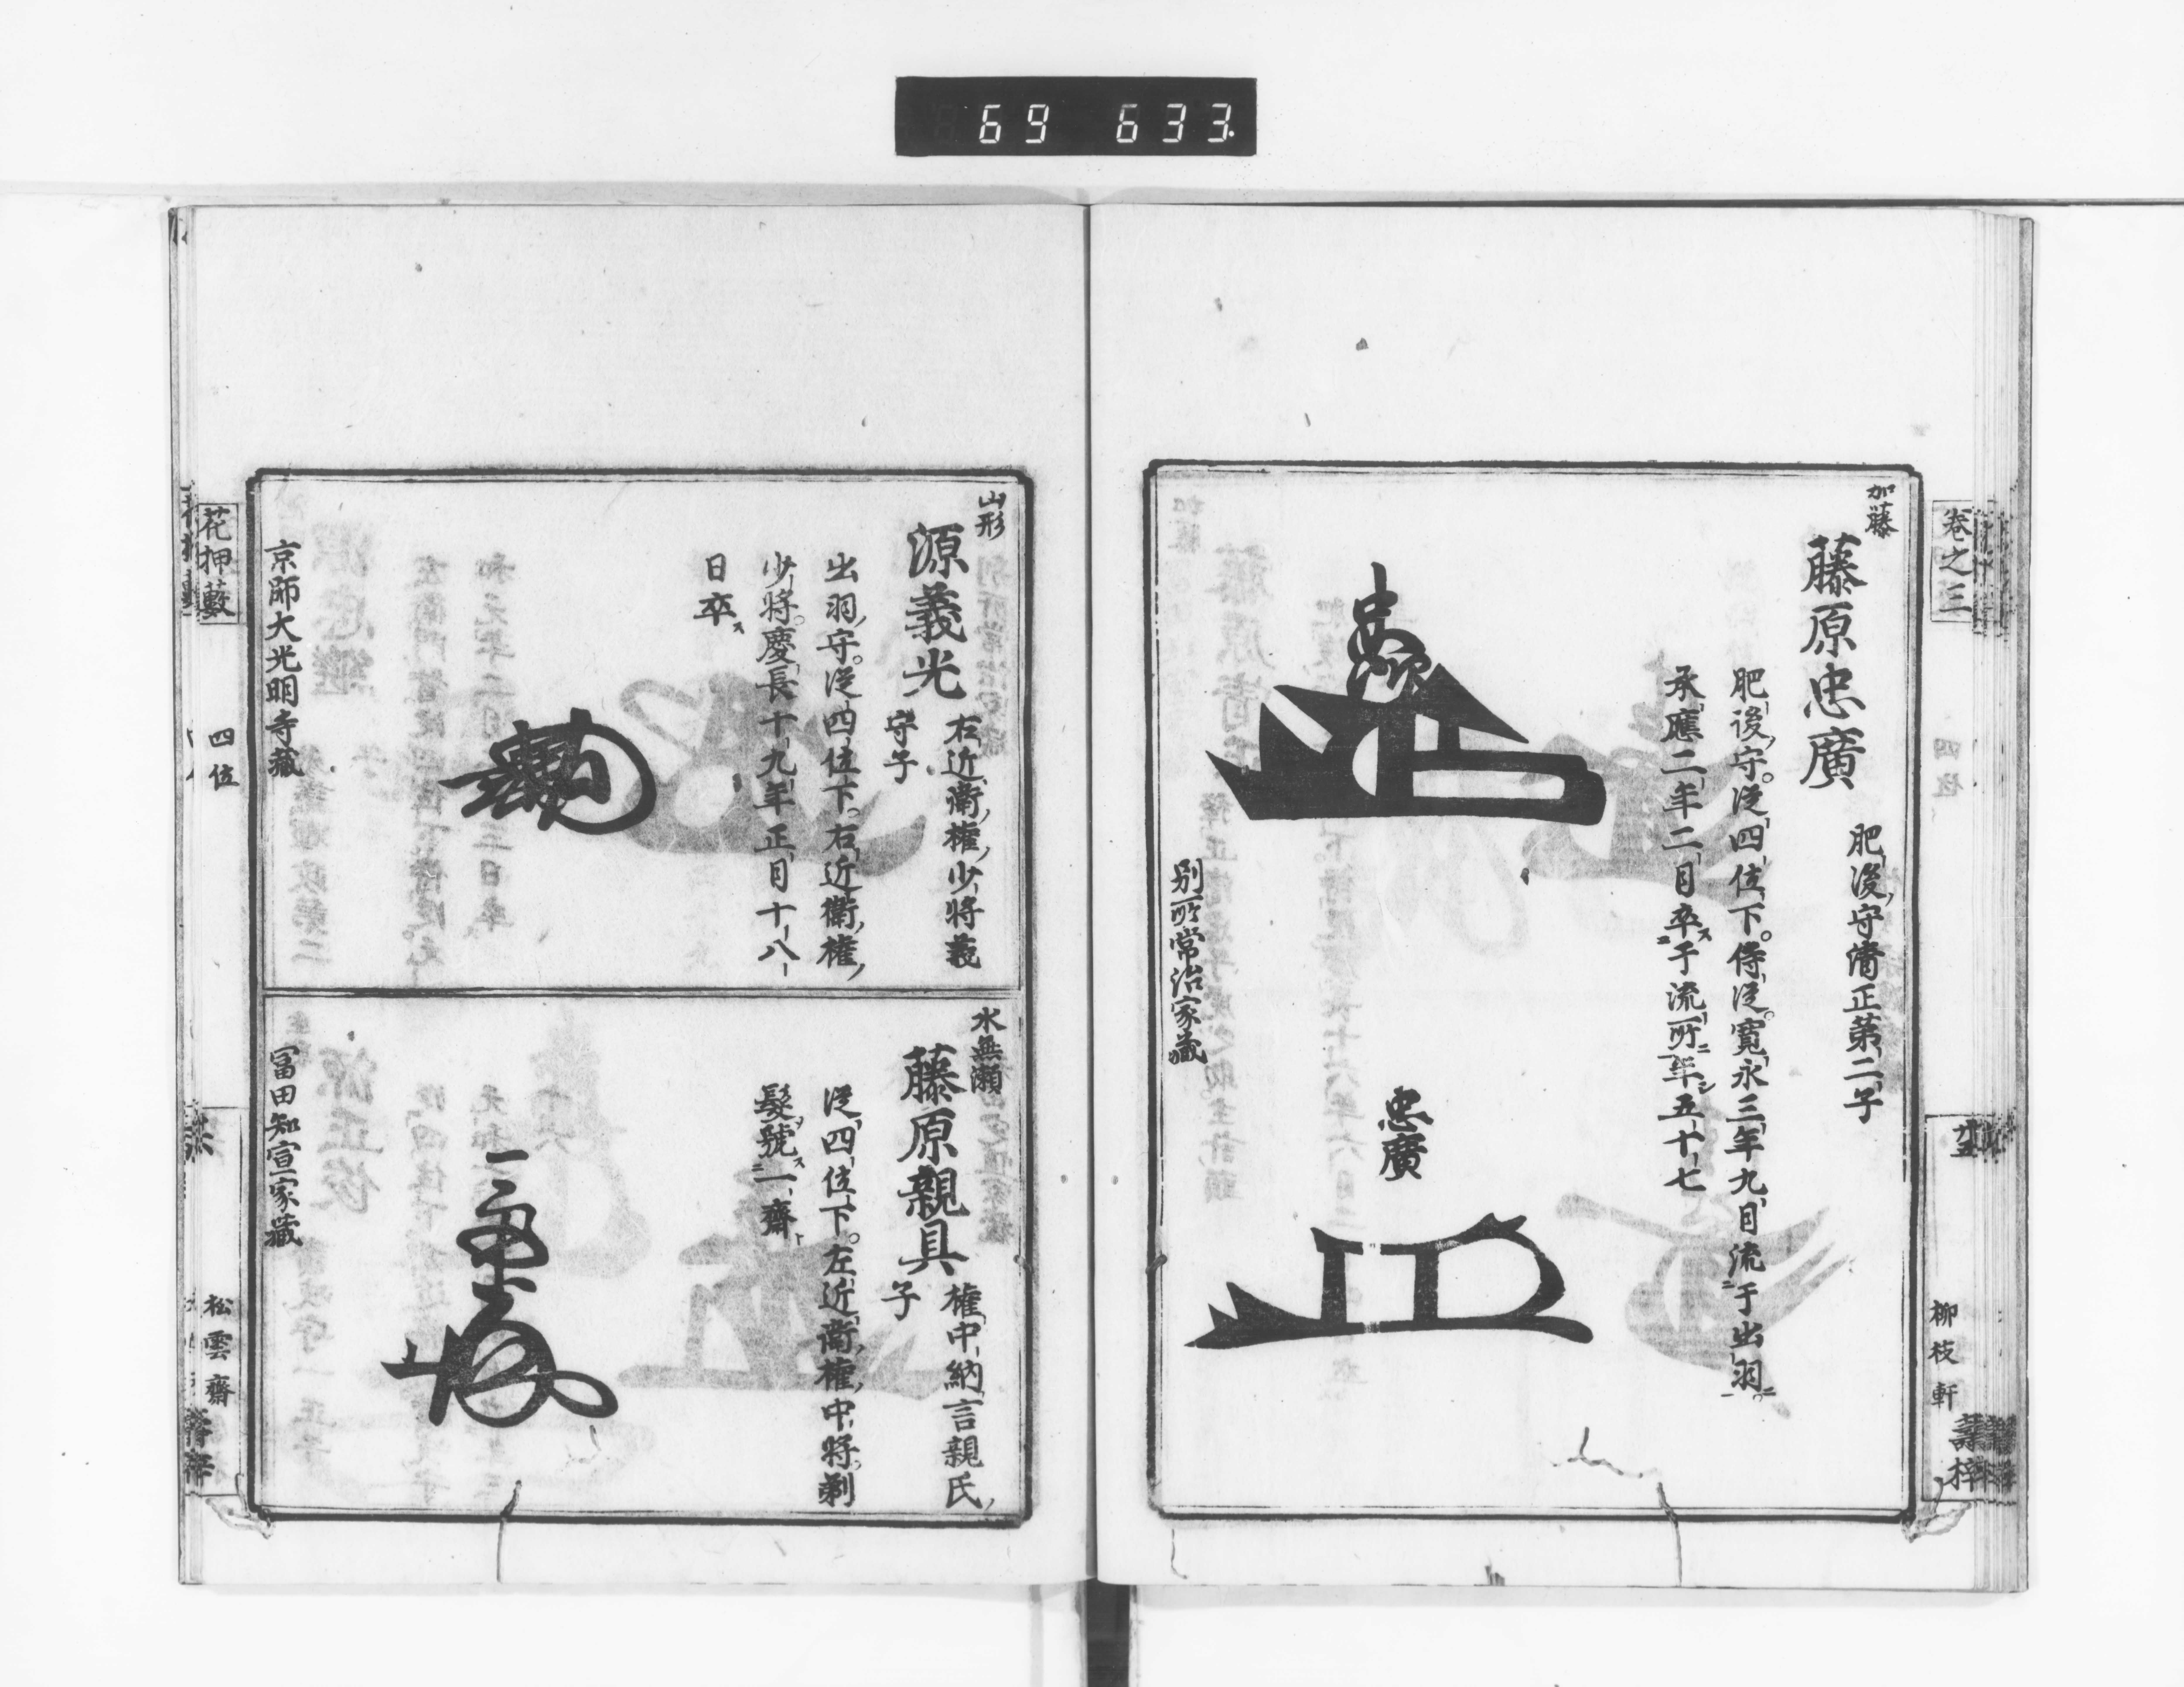 69 633.
卷之三
四位
柳枝軒
加藤
藤原忠廣
肥後守清正第二子
肥後守。從四位下。侍從。寛永三年九月流于出羽。
承應二年二月卒于流所年五十七
忠廣
忠廣
別所常治家藏
山形
源義光
右近衛權少將義
守子
出羽守。從四位下。右近衛權
少將。慶長十九年正月十八
日卒
京師大光明寺藏
水無瀬
藤原親具
權中納言親氏
子
從四位下。左近衛權中將。剃
髪號一齋
一齋
冨田知宣家藏
花押藪
四位
松雲齋